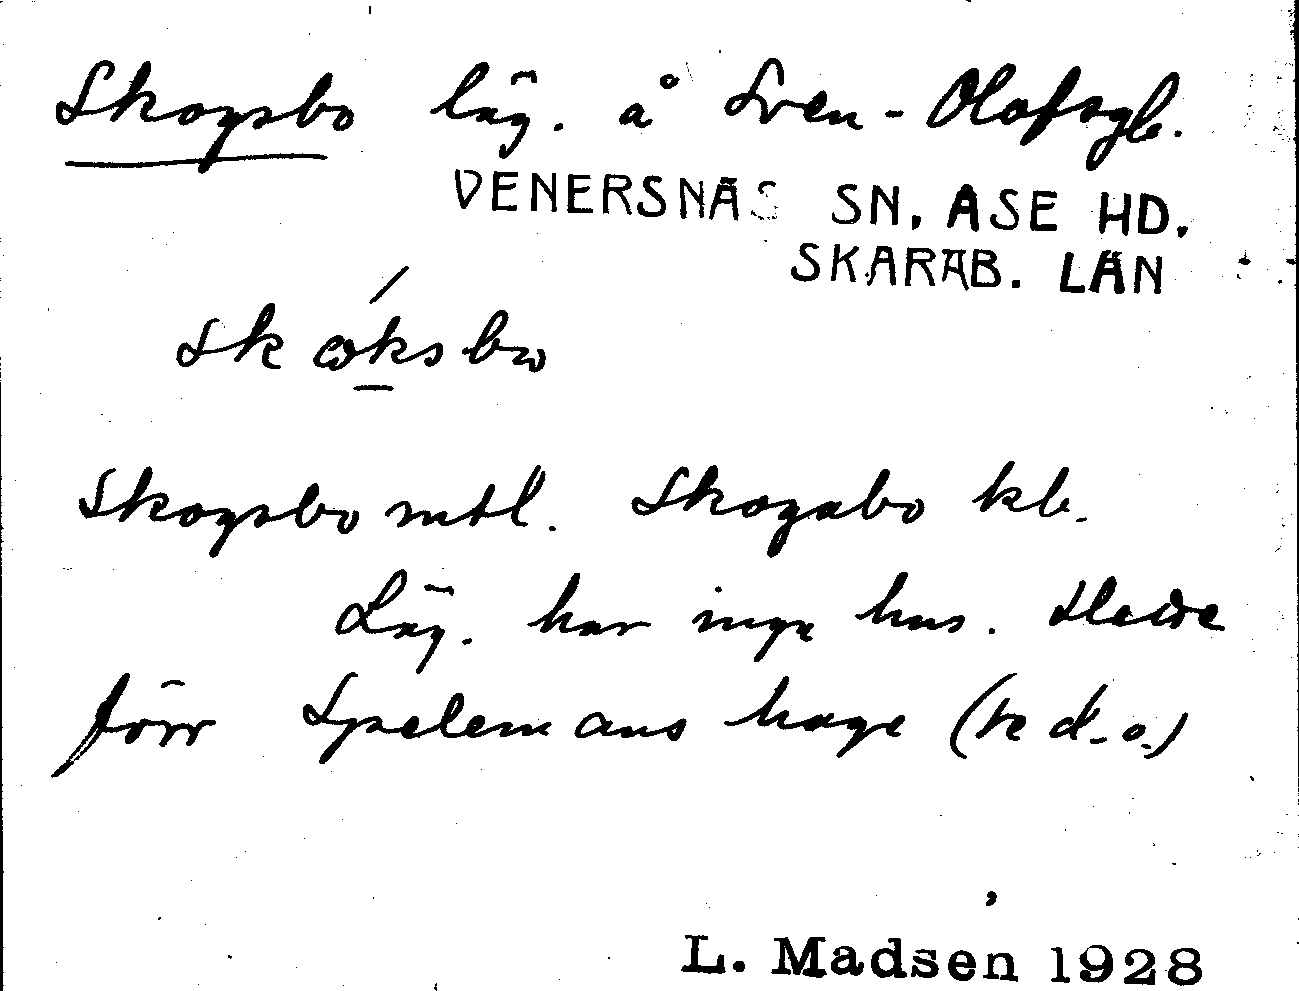 Skogsbo läg. å Sven-Olofsgb.
VENERSNÄS SN, ASE HD.
SKARAB. LÄN
skoksbo
Skogsbo mtl. Skogabo kb.
Läg. har inga hus. Hette
förr Spelemans hage (se d.o.)
L. Madsen 1928